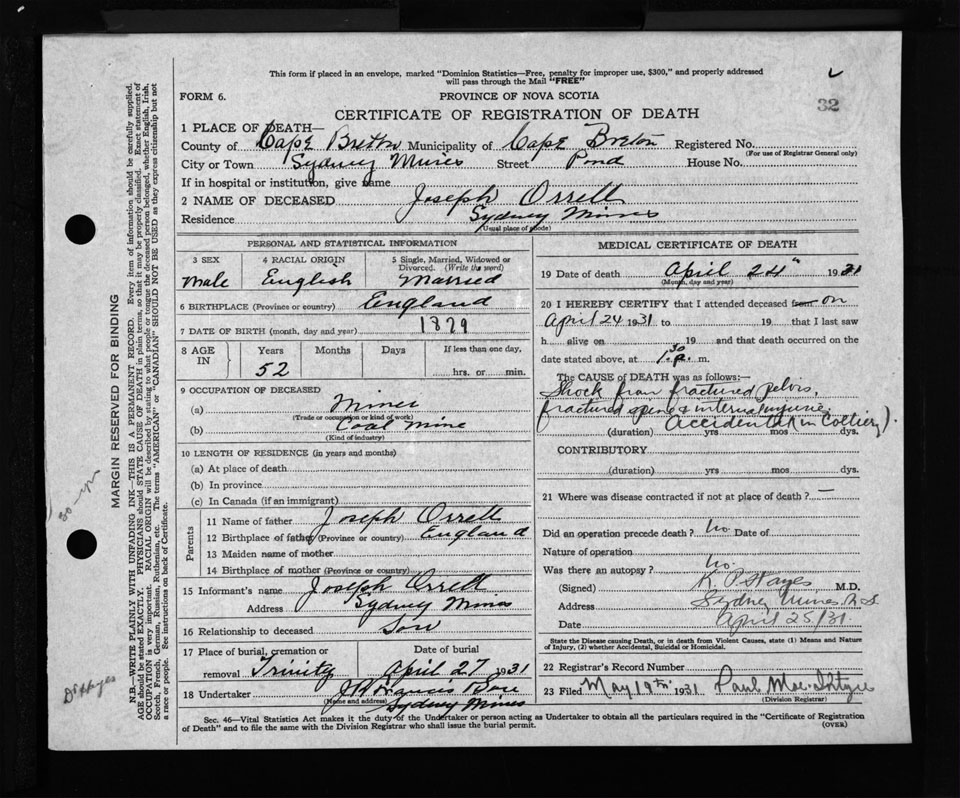 This form if placed in an envelope, marked "Dominion Statistics—Free, penalty for improper use, $300," and properly addressed
will pass through the Mail "FREE"
FORM 6.
PROVINCE OF NOVA SCOTIA
32
CERTIFICATE OF REGISTRATION OF DEATH
1 PLACE OF DEATH—
County of Cape Breton Municipality of Cape Breton Registered No.
(For use of Registrar General only)
City or Town Sydney Mines Street Pond House No.
If in hospital or institution, give name
2 NAME OF DECEASED Joseph Orrell
Residence Sydney Mines
(Usual place of abode)
PERSONAL AND STATISTICAL INFORMATION
3 SEX 4 RACIAL ORIGIN 5 Single, Married, Widowed or
Divorced. (Write the word)
Male English Married
6 BIRTHPLACE (Province or country) England
7 DATE OF BIRTH (month, day and year) 1879
8 AGE IN Years Months Days If less than one day,
52 hrs. or min.
9 OCCUPATION OF DECEASED
(a) Miner
(Trade or occupation or kind of work)
(b) Coal Mine
(Kind of industry)
10 LENGTH OF RESIDENCE (in years and months)
(a) At place of death
(b) In province
(c) In Canada (if an immigrant)
Parents
11 Name of father Joseph Orrell
12 Birthplace of father (Province or country) England
13 Maiden name of mother
14 Birthplace of mother (Province or country)
15 Informant's name Joseph Orrell
Address Sydney Mines
16 Relationship to deceased Son
17 Place of burial, cremation or Date of burial
removal Trinity April 27 1931
18 Undertaker J R Francis
(Name and address) Sydney Mines
MEDICAL CERTIFICATE OF DEATH
19 Date of death April 24" 1931
(Month, day and year)
20 I HEREBY CERTIFY that I attended deceased from on
April 24 1931 to 19 that I last saw
h alive on 19 and that death occurred on the
date stated above, at 1.30 p. m.
The CAUSE of DEATH was as follows:—
Shock from fractured pelvis,
fractured spine & internal injuries
Accidental (in Colliery).
(duration) yrs mos dys.
CONTRIBUTORY
(duration) yrs mos dys.
21 Where was disease contracted if not at place of death? —
Did an operation precede death? No Date of
Nature of operation
Was there an autopsy? No.
(Signed) K. P. Hayes M.D.
Address Sydney Mines N S
Date April 25/31
State the Disease causing Death, or in death from Violent Causes, state (1) Means and Nature
of Injury, (2) whether Accidental, Suicidal or Homicidal.
22 Registrar's Record Number
23 Filed May 19th 1931 Paul MacIntyre
(Division Registrar)
Sec. 46—Vital Statistics Act makes it the duty of the Undertaker or person acting as Undertaker to obtain all the particulars required in the "Certificate of Registration
of Death" and to file the same with the Division Registrar who shall issue the burial permit. (OVER)
MARGIN RESERVED FOR BINDING
N.B.—WRITE PLAINLY WITH UNFADING INK—THIS IS A PERMANENT RECORD. Every item of information should be carefully supplied.
AGE should be stated EXACTLY. PHYSICIANS should STATE CAUSE OF DEATH in plain terms, so that it may be properly classified. Exact statement of
OCCUPATION is very important. RACIAL ORIGIN will be described by stating to what people or tongue the deceased person belonged, whether English, Irish,
Scotch, French, German, Russian, Ruthenian, etc. The terms "AMERICAN" or "CANADIAN" SHOULD NOT BE USED as they express citizenship but not
a race or people. See instructions on back of Certificate.
Dr Hayes